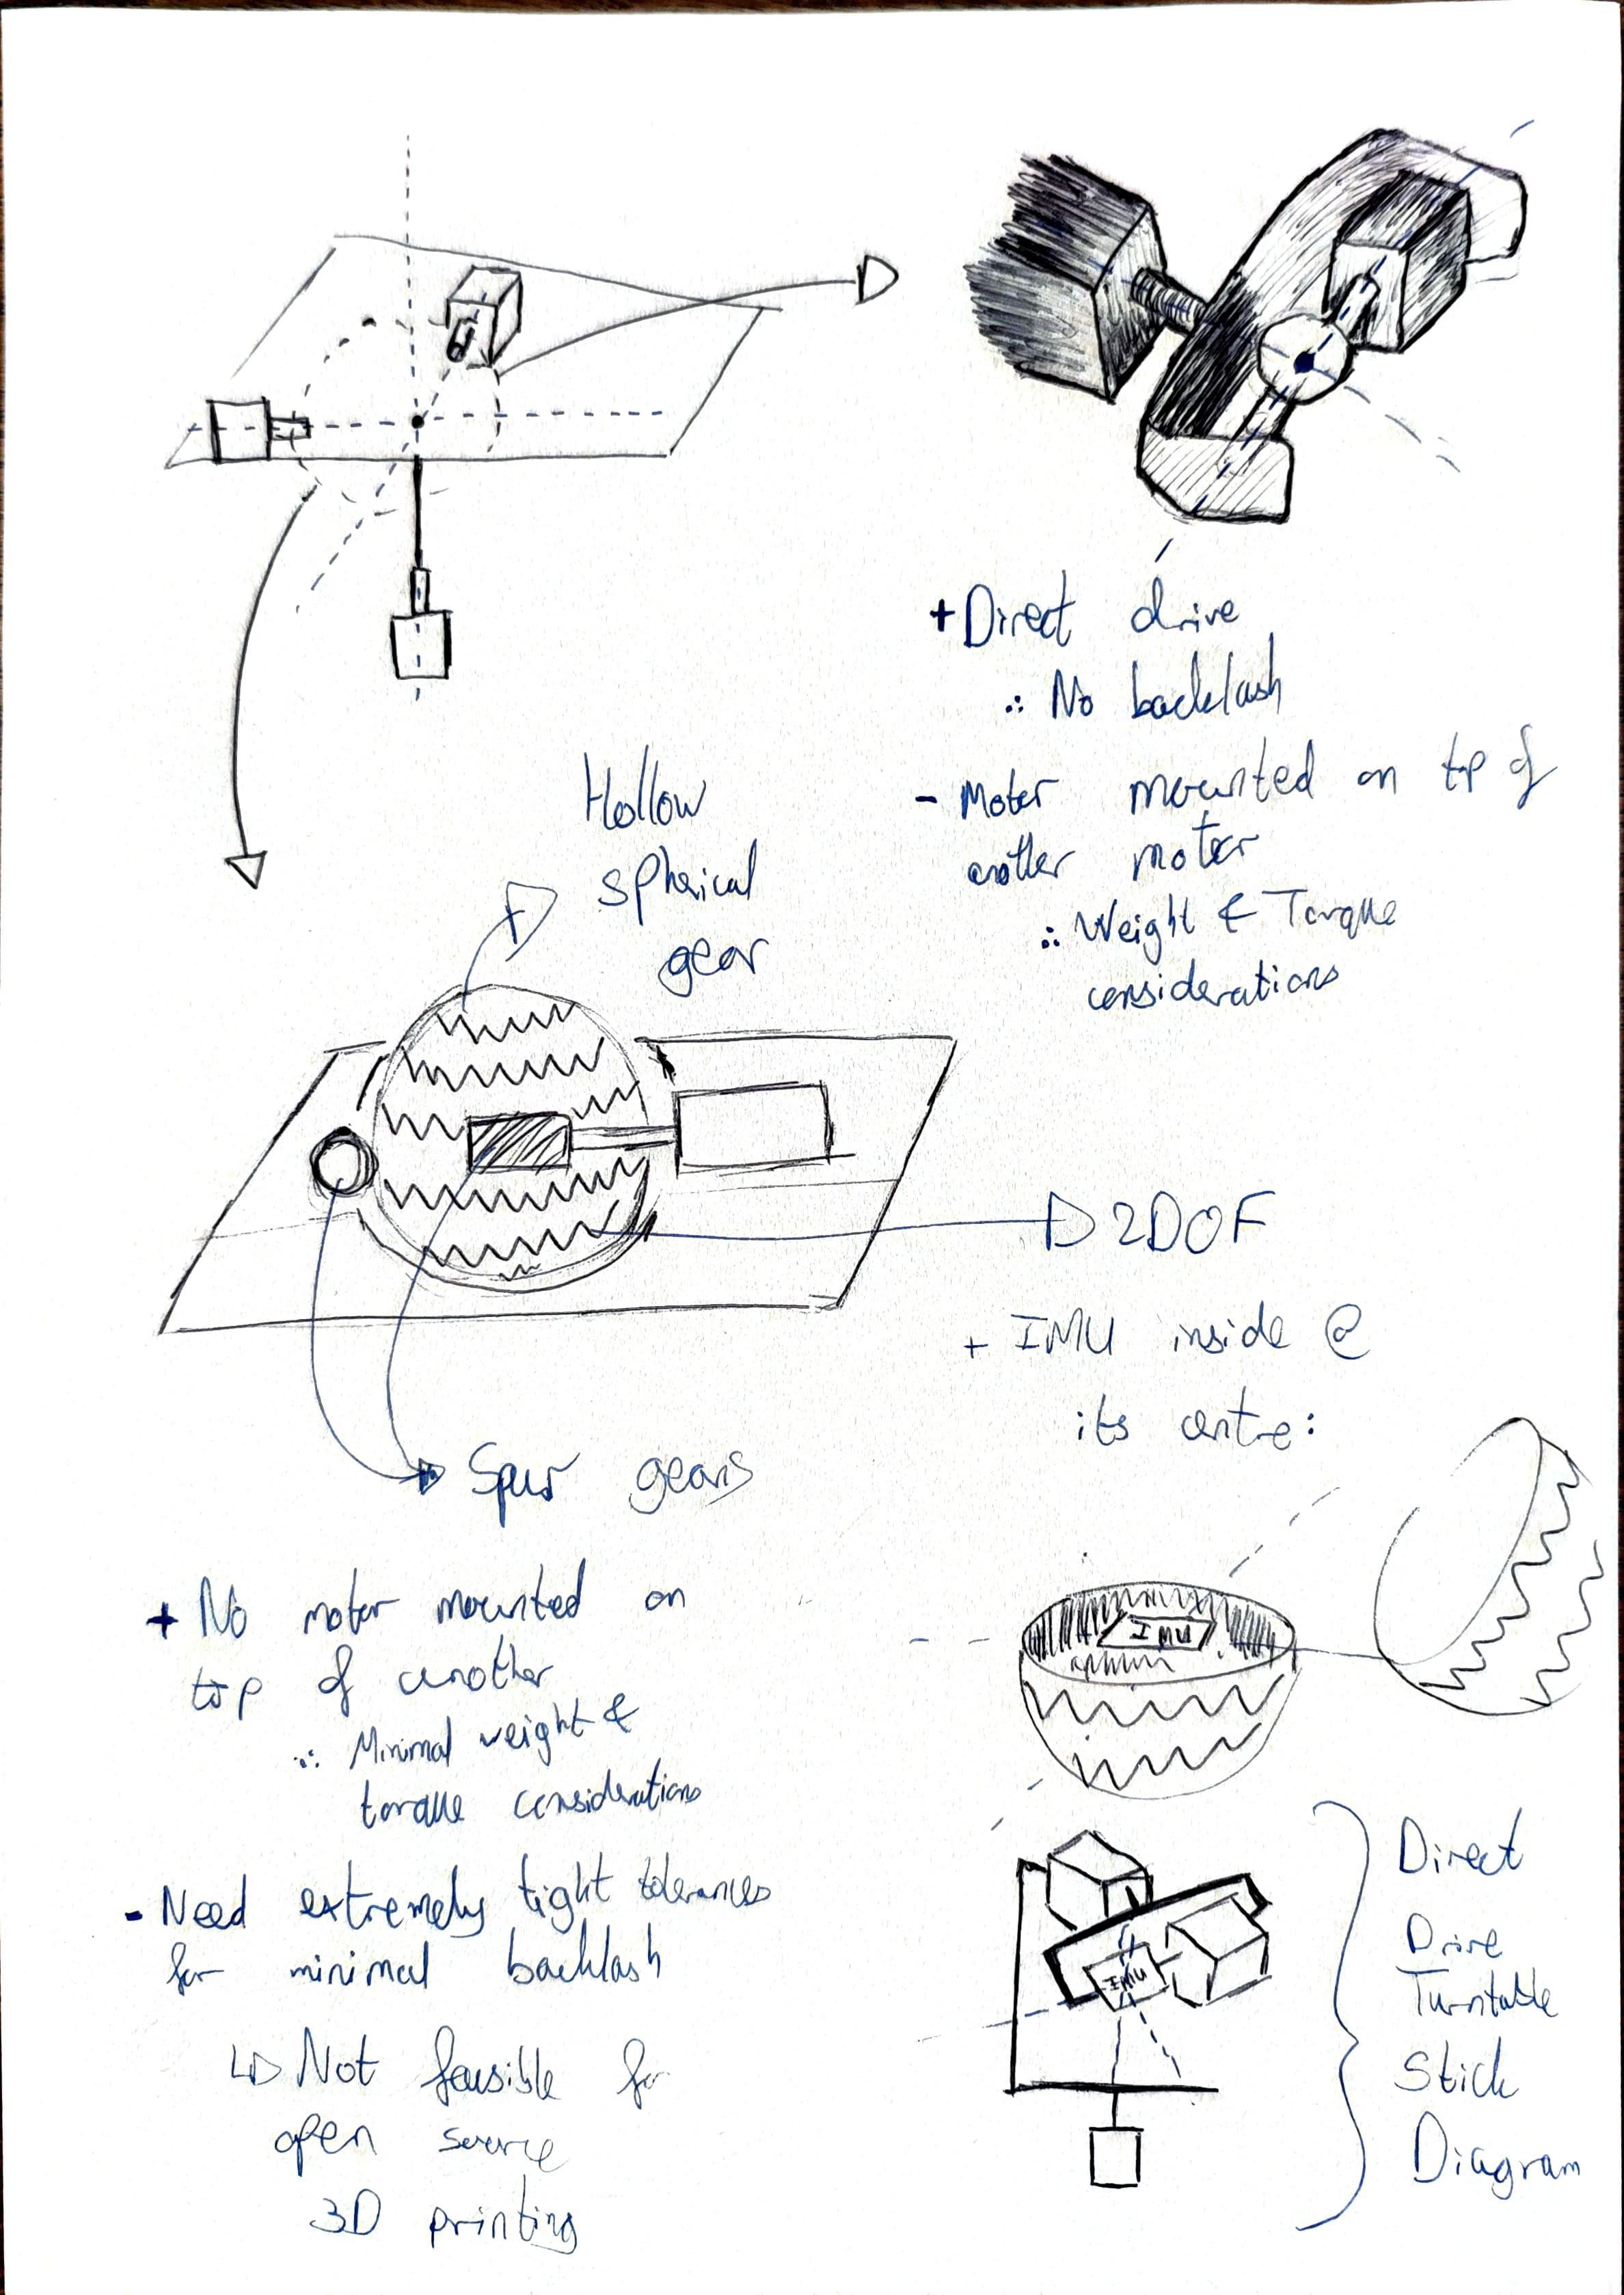 + Direct drive
∴ No backlash
- Motor mounted on top of
another motor
∴ Weight & Torque
considerations
Hollow
spherical
gear
2DOF
+ IMU inside @
its centre:
Spur gears
IMU
+ No motor mounted on
top of another
∴ Minimal weight &
torque considerations
- Need extremely tight tolerances
for minimal backlash
↳ Not feasible for
open source
3D printing
IMU
Direct
Drive
Turntable
Stick
Diagram